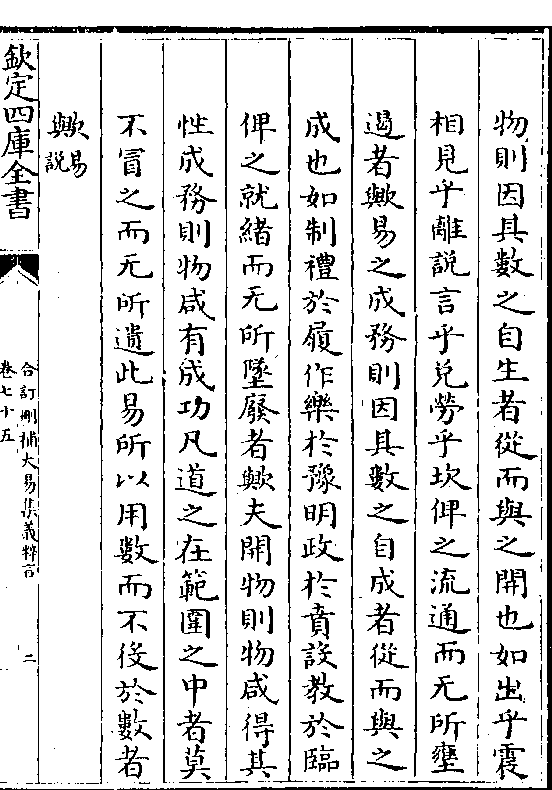 物則因其數之自生者從而與之開也如出乎震
相見乎離説言乎兊勞乎坎俾之流通而无所壅
遏者歟易之成務則因其數之自成者從而與之
成也如制禮於履作樂於豫明政於賁設教於臨
俾之就緒而无所墜廢者歟夫開物則物咸得其
性成務則物咸有成功凡道之在範圍之中者莫
不冒之而无所遺此易所以用數而不役於數者
歟易
説
欽定四庫全書
合訂刪補大易集義粹言
卷七十五
二